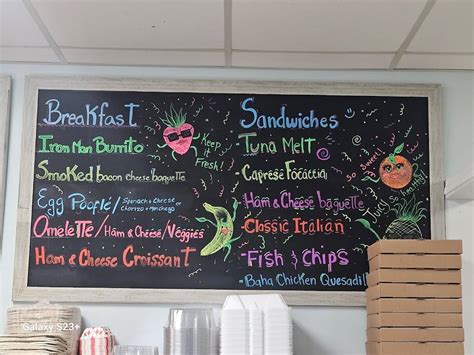 Breakfast
Iron Man Burrito
Smoked bacon cheese baguette
Egg Pooflé/ Spinach + Cheese or
Chorizo + Manchego
Omelette/Ham & Cheese/Veggies
Ham & Cheese Croissant
Keep it
Fresh!
Sandwiches
Tuna Melt
Caprese Focaccia
Ham & Cheese baguette
-Classic Italian
-Fish & Chips
-Baha Chicken Quesadil
So Sweet!
Galaxy S23+